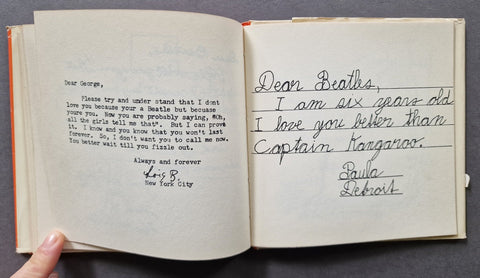 Dear George,
Please try and under stand that I dont
love you because your a Beatle but becuase
youre you. Now you are probably saying, "Oh,
all the girls tell me that". But I can prove
it. I know and you know that you won't last
forever. So, I don't want you to call me now.
You better wait till you fizzle out.
Always and forever
Lois B.
New York City
Dear Beatles,
I am six years old
I love you better than
Captain Kangaroo.
Paula
Detroit